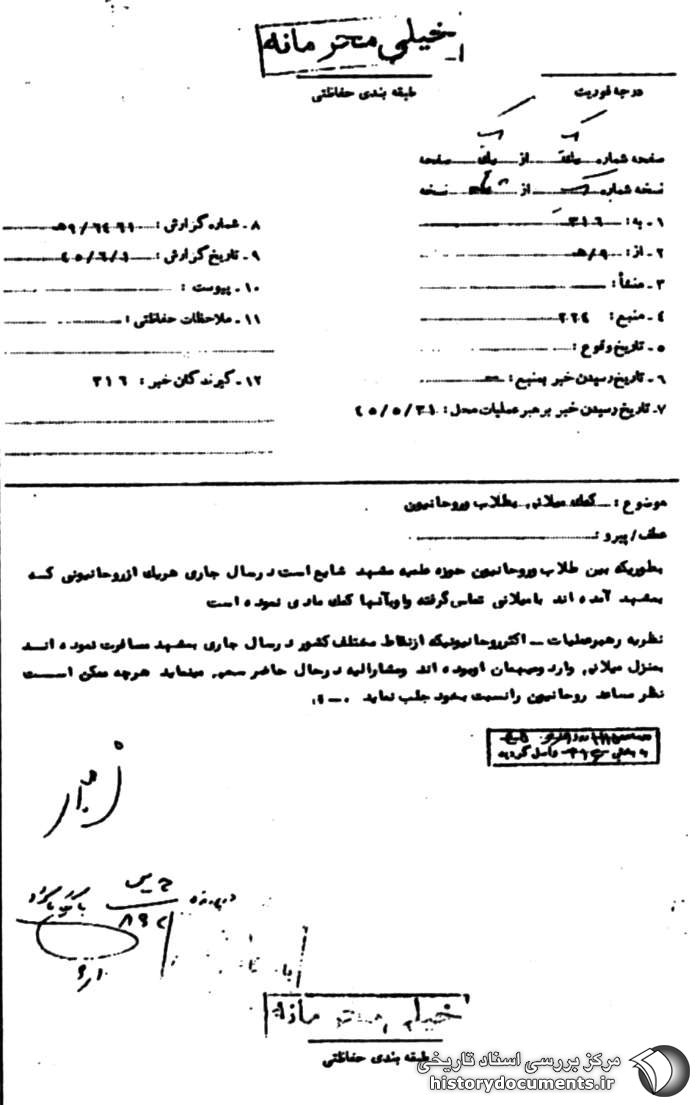 خیلی محرمانه
طبقه بندی حفاظتی
درجه فوریت
صفحه شماره یک از یک صفحه
نسخه شماره از نسخه
۱ـ به: ۳۱۶
۲ـ از: ۹/ه
۳ـ منشأ:
۴ـ منبع: ۲۲۴
۵ـ تاریخ وقوع:
۶ـ تاریخ رسیدن خبر بمنبع:
۷ـ تاریخ رسیدن خبر برهبر عملیات محل: ۴۵/۵/۳۱
۸ـ شماره گزارش:
۹ـ تاریخ گزارش: ۴۵/۶/۱
۱۰ـ پیوست:
۱۱ـ ملاحظات حفاظتی:
۱۲ـ گیرندگان خبر: ۳۱۶
موضوع: کمک میلانی بطلاب و روحانیون
عطف/پیرو:
بطوریکه بین طلاب و روحانیون حوزه علمیه مشهد شایع است در سال جاری هریک از روحانیونی که
بمشهد آمده اند با میلانی تماس گرفته و او بآنها کمک مادی نموده است
نظریه رهبر عملیات ـ اکثر روحانیونیکه از نقاط مختلف کشور در سال جاری بمشهد مسافرت نموده اند
بمنزل میلانی وارد و میهمان او بوده اند و مشارالیه در حال حاضر سعی مینماید هرچه ممکن است
نظر مساعد روحانیون را نسبت بخود جلب نماید
خیلی محرمانه
طبقه بندی حفاظتی
مرکز بررسی اسناد تاریخی
historydocuments.ir